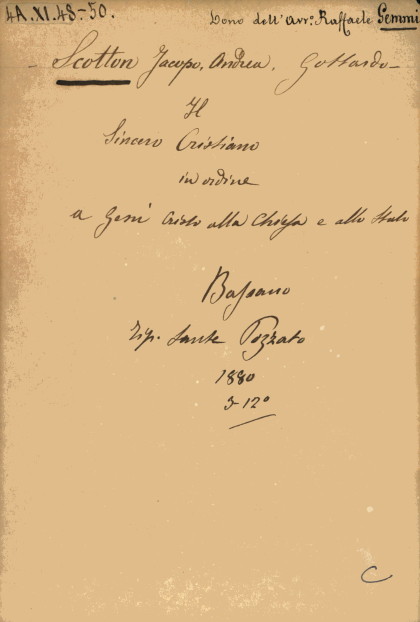 4A.XI.48-50.
Dono dell'avv. Raffaele Gemmi
- Scotton Jacopo, Andrea, Gottardo -
Il
Sincero Cristiano
in ordine
a Gesù Cristo alla Chiesa e allo Stato
Bassano
Tip. Sante Pozzato
1880
3-12°
C